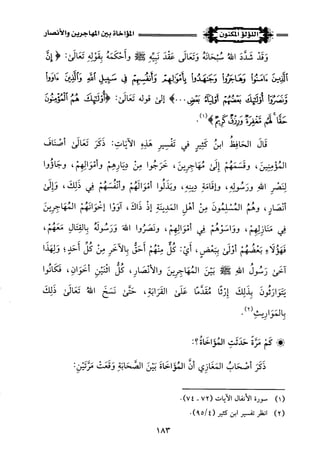 اللؤلؤ المكنون
المؤاخاة بين المهاجرين والأنصار
وَقَدْ شَدَّدَ اللهُ سُبْحَانَهُ وَتَعَالَى عَقْدَ نَبِيِّهِ ﷺ وَأَحْكَمَهُ بِقَوْلِهِ تَعَالَى: ﴿إِنَّ
الَّذِينَ ءَامَنُوا وَهَاجَرُوا وَجَٰهَدُوا بِأَمْوَٰلِهِمْ وَأَنفُسِهِمْ فِى سَبِيلِ اللَّهِ وَالَّذِينَ ءَاوَوا
وَّنَصَرُوٓا أُولَٰٓئِكَ بَعْضُهُمْ أَوْلِيَآءُ بَعْضٍ...﴾ إلى قوله تَعَالَى: ﴿أُولَٰٓئِكَ هُمُ الْمُؤْمِنُونَ
حَقًّا لَّهُم مَّغْفِرَةٌ وَرِزْقٌ كَرِيمٌ﴾(١).
قَالَ الحَافِظُ ابنُ كَثِيرٍ فِي تَفْسِيرِ هَذِهِ الآيَاتِ: ذَكَرَ تَعَالَى أَصْنَافَ
المُؤْمِنِينَ، وَقَسَّمَهُمْ إِلَى مُهَاجِرِينَ، خَرَجُوا مِنْ دِيَارِهِمْ وَأَمْوَالِهِمْ، وَجَاؤُوا
لِنَصْرِ اللهِ وَرَسُولِهِ، وَإِقَامَةِ دِينِهِ، وَبَذَلُوا أَمْوَالَهُمْ وَأَنْفُسَهُمْ فِي ذَلِكَ، وَإِلَى
أَنْصَارٍ، وَهُمُ المُسْلِمُونَ مِنْ أَهْلِ المَدِينَةِ إِذْ ذَاكَ، آوَوْا إِخْوَانَهُمُ المُهَاجِرِينَ
فِي مَنَازِلِهِمْ، وَوَاسَوْهُمْ فِي أَمْوَالِهِمْ، وَنَصَرُوا اللهَ وَرَسُولَهُ بِالقِتَالِ مَعَهُمْ،
فَهَؤُلَاءِ بَعْضُهُمْ أَوْلَى بِبَعْضٍ، أَيْ: كُلٌّ مِنْهُمْ أَحَقُّ بِالآخَرِ مِنْ كُلِّ أَحَدٍ، وَلِهَذَا
آخَى رَسُولُ اللهِ ﷺ بَيْنَ المُهَاجِرِينَ وَالأَنْصَارِ، كُلُّ اثْنَيْنِ أَخَوَانِ، فَكَانُوا
يَتَوَارَثُونَ بِذَلِكَ إِرْثًا مُقَدَّمًا عَلَى القَرَابَةِ، حَتَّى نَسَخَ اللهُ تَعَالَى ذَلِكَ
بِالمَوَارِيثِ(٢).
* كَمْ مَرَّةً حَدَثَتِ المُؤَاخَاةُ؟:
ذَكَرَ أَصْحَابُ المَغَازِي أَنَّ المُؤَاخَاةَ بَيْنَ الصَّحَابَةِ وَقَعَتْ مَرَّتَيْنِ:
(١) سورة الأنفال الآيات (٧٢ - ٧٤).
(٢) انظر تفسير ابن كثير (٤/ ٩٥).
١٨٣